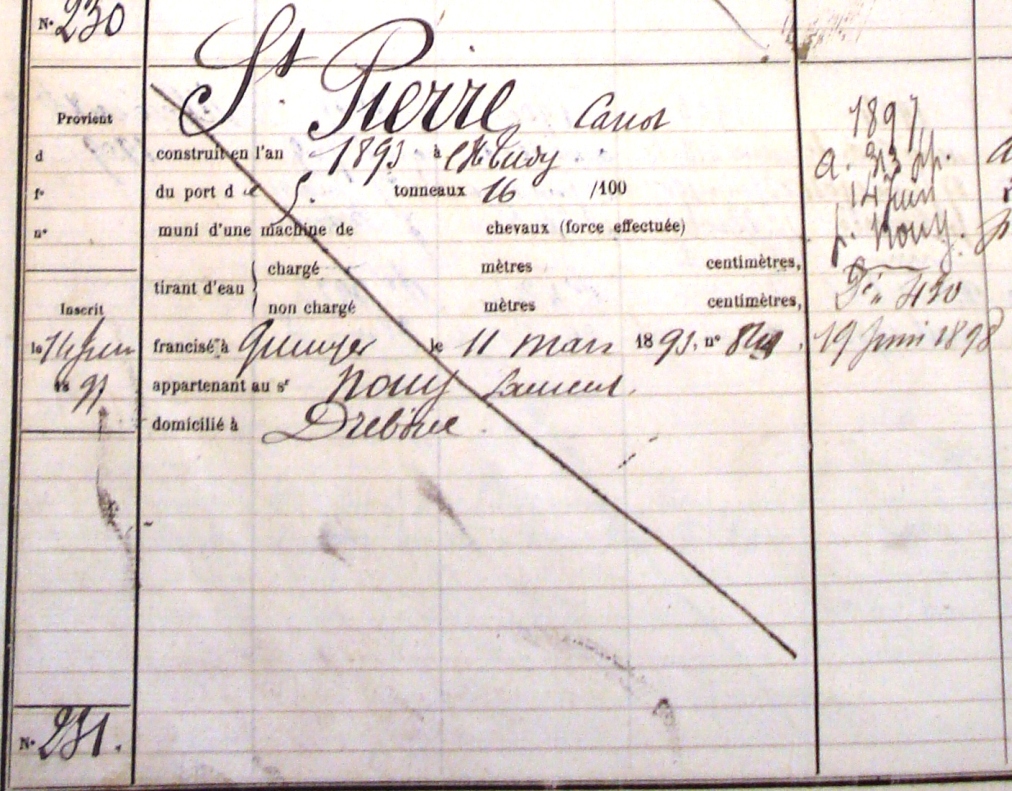 No 230
St Pierre Canot
Provient
d
fo
no
construit en l'an 1893 à
du port d e 5. tonneaux 16 /100
muni d'une machine de chevaux (force effectuée)
tirant d'eau { chargé mètres centimètres,
non chargé mètres centimètres,
Inscrit
le 14 Juin
18 97
francisé à Quimper le 11 mars 1893, no
appartenant au sr Nouy Laurent.
domicilié à
1897
14 Juin
p. Nouy.
19 Juin 1898
No 231.